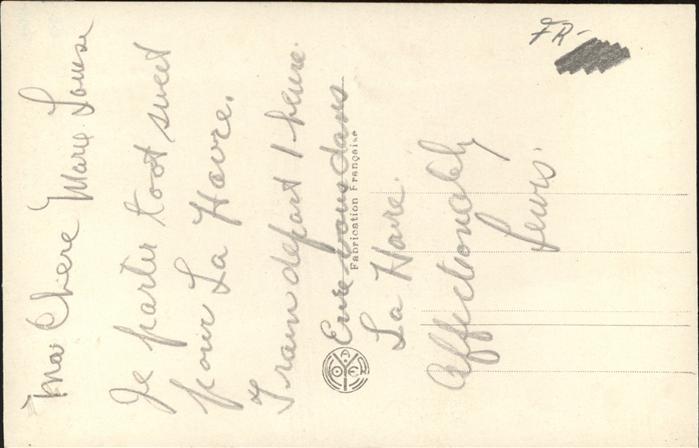 Ma Chere Marie Louise
Je partir toot sweet
pour La Havre.
Train depart 1 heure.
vous dans
La Havre.
Affectionably
Lewis.
Fabrication Française
FR-